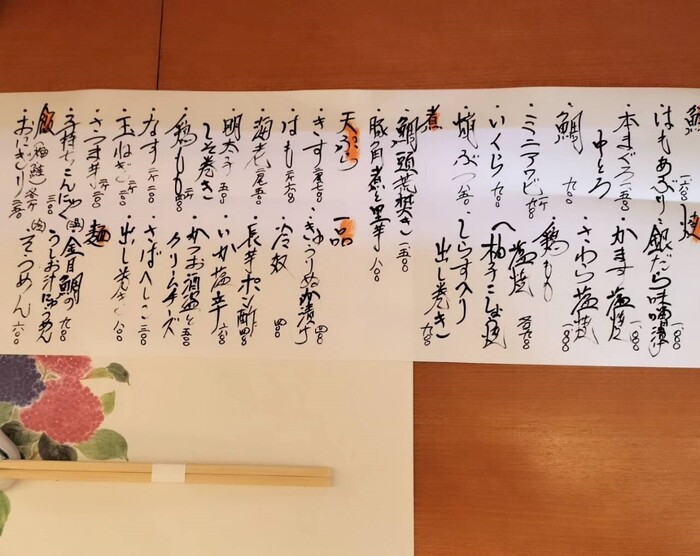 はもあぶり 一八〇〇
本まぐろ 一五〇〇
中とろ
鯛 九〇〇
ミニアワビ
いくら 九〇〇
蛸ぶつ 五〇〇
焼
銀だら味噌漬け 一八〇〇
かます塩焼 一八〇〇
さわら塩焼 一八〇〇
鶏もも
塩焼
柚子こしょう焼
しらす入り
出し巻き 九〇〇
煮
鯛頭荒焚き 一五〇〇
豚角煮と里芋 八〇〇
天ぷら
きす
はも
海老
明太子 五〇〇
しそ巻き
鶏もも
なす
玉ねぎ
さつま芋
子持ちこんにゃく 三〇〇
一品
きゅうりぬか漬け 四〇〇
冷奴 四〇〇
長芋ポン酢 四〇〇
いか塩辛 六〇〇
かつお酒盗と 五〇〇
クリームチーズ
さばへしこ 三〇〇
出し巻き 八〇〇
飯
おにぎり
麺
金目鯛の 九〇〇
うしお汁にゅうめん
そうめん 六〇〇